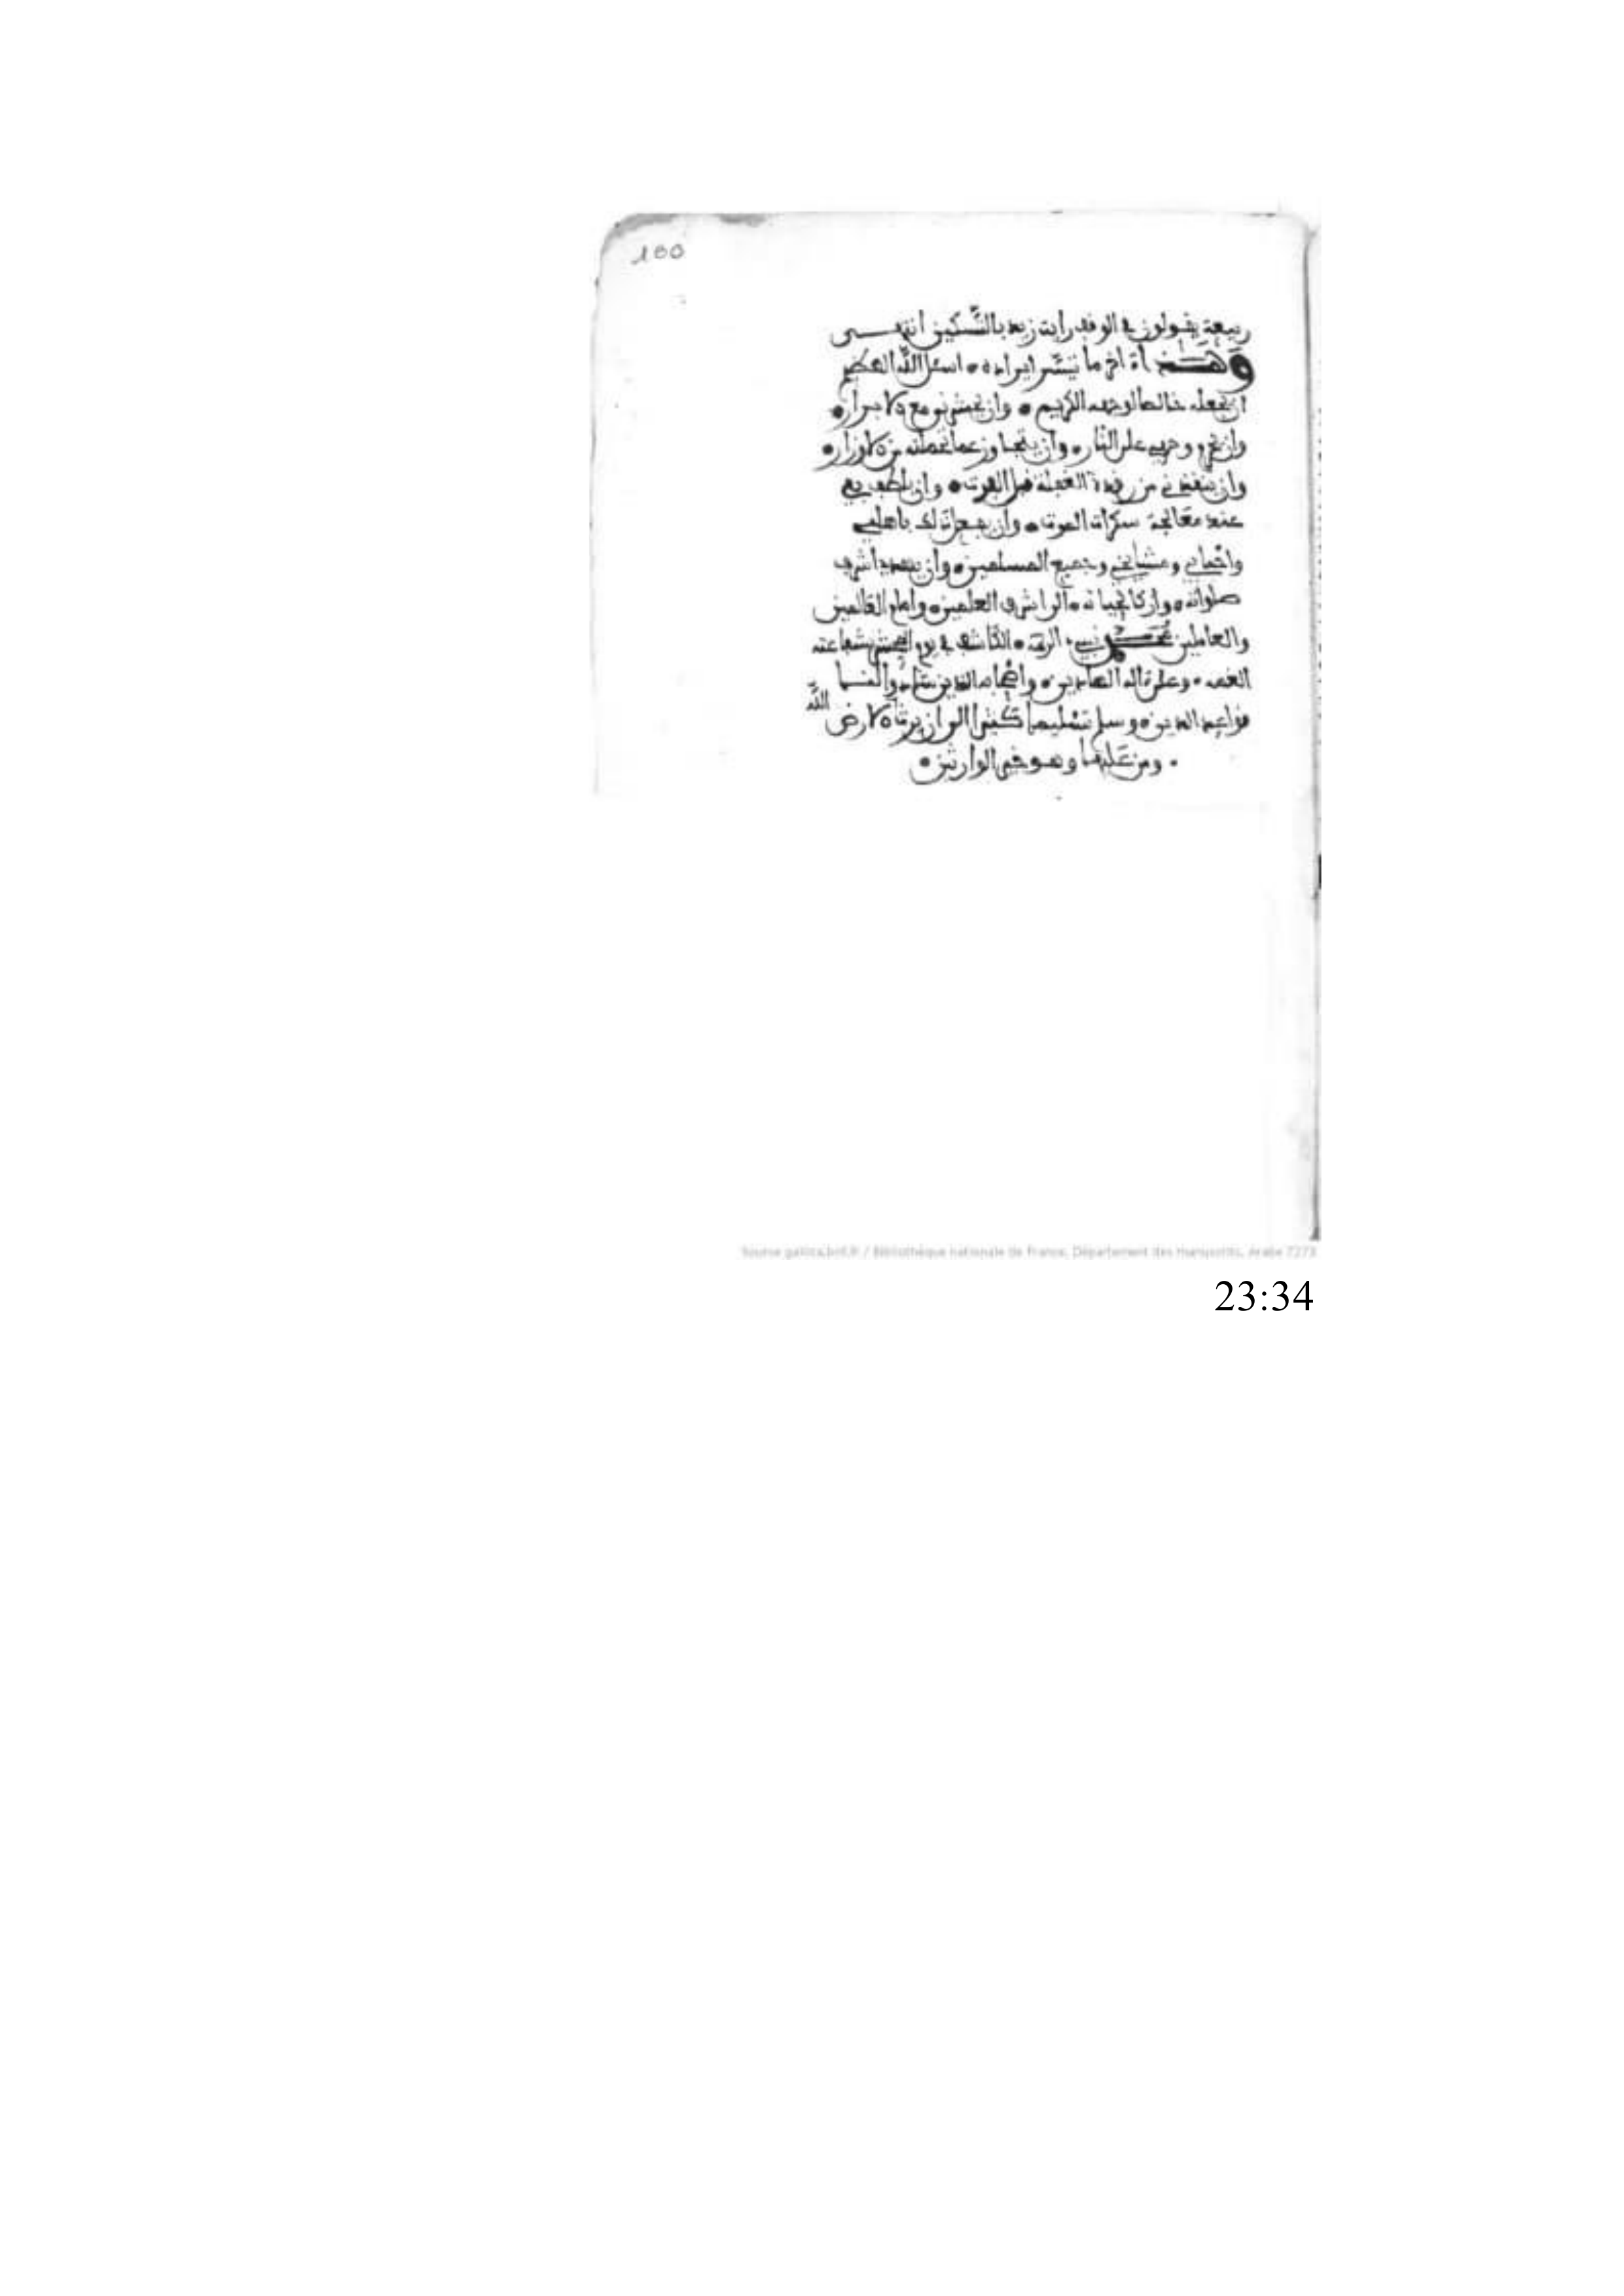 100
ربيعة يقولون في الوقف رايت زيد بالتسكين انتهى
وهذا اخر ما تيسر ايراده اسئل الله العظيم
ان يجعله خالصا لوجهه الكريم وان يحشرني مع الابرار
وان يحرم وجهي على النار وان يتجاوز عما تحملته من الاوزار
وان يوقظني من رقدة الغفلة قبل الفوت وان يلطف بي
عند معالجة سكرات الموت وان يفعل ذلك باهلي
واحبابي ومشايخي وجميع المسلمين وان يهدي اشرف
صلواته وازكى تحياته الى اشرف العلمين وامام العالمين
والعاملين محمد نبي الرحمة الكاشف في يوم المحشر بشفاعته
الغمة وعلى اله الهادين واصحابه الذين شادوا لنا
قواعد الدين وسلم تسليما كثيرا الى ان يرث الله الارض
ومن عليها وهو خير الوارثين
Source gallica.bnf.fr / Bibliothèque nationale de France, Département des manuscrits, Arabe 7273
23:34